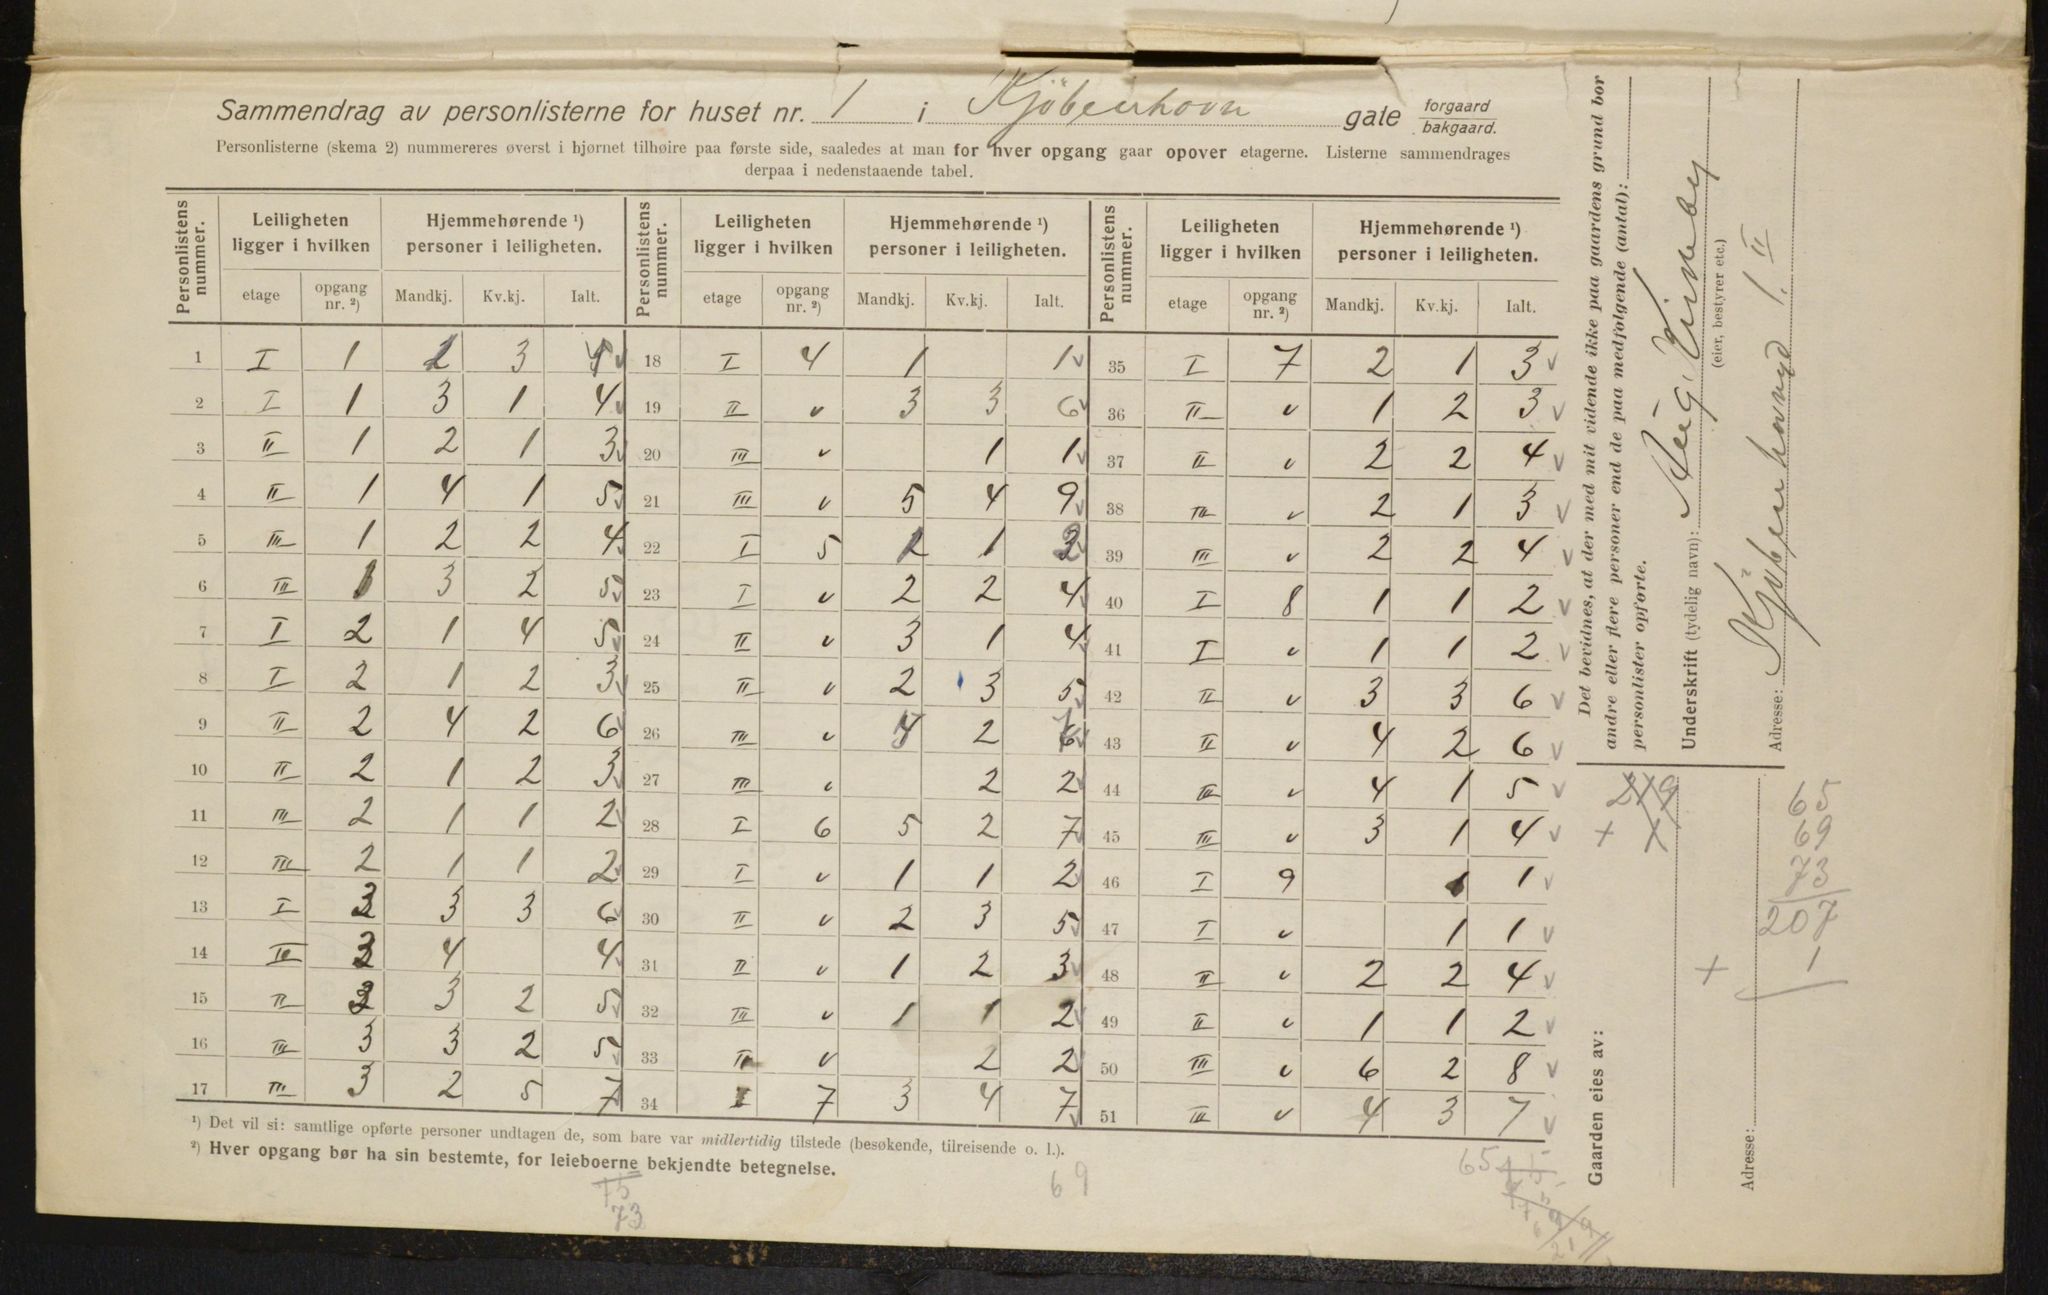 Sammendrag av personlisterne for huset nr. 1 i Kjøbenhavn gate forgaard bakgaard.
Personlisterne (skema 2) nummereres øverst i hjørnet tilhøire paa første side, saaledes at man for hver opgang gaar opover etagerne. Listerne sammendrages
derpaa i nedenstaaende tabel.
Personlistens nummer. Leiligheten ligger i hvilken Hjemmehørende ¹) personer i leiligheten. Personlistens nummer. Leiligheten ligger i hvilken Hjemmehørende ¹) personer i leiligheten. Personlistens nummer. Leiligheten ligger i hvilken Hjemmehørende ¹) personer i leiligheten.
etage opgang nr. ²) Mandkj. Kv.kj. Ialt. etage opgang nr. ²) Mandkj. Kv.kj. Ialt. etage opgang nr. ²) Mandkj. Kv.kj. Ialt.
1 I 1 3 18 I 4 1 1 35 I 7 2 1 3
2 I 1 3 1 4 19 II v 3 3 6 36 II v 1 2 3
3 II 1 2 1 3 20 III v 1 1 37 II v 2 2 4
4 II 1 4 1 5 21 III v 5 4 9 38 III v 2 1 3
5 III 1 2 2 4 22 I 5 2 1 3 39 III v 2 2 4
6 III 1 3 2 5 23 I v 2 2 4 40 I 8 1 1 2
7 I 2 1 4 5 24 II v 3 1 4 41 I v 1 1 2
8 I 2 1 2 3 25 II v 2 3 5 42 II v 3 3 6
9 II 2 4 2 6 26 III v 2 43 II v 4 2 6
10 II 2 1 2 3 27 III v 2 2 44 III v 4 1 5
11 III 2 1 1 2 28 I 6 5 2 7 45 III v 3 1 4
12 III 2 1 1 2 29 I v 1 1 2 46 I 9 1 1
13 I 3 3 3 6 30 II v 2 3 5 47 I v 1 1
14 II 3 4 4 31 II v 1 2 3 48 II v 2 2 4
15 II 3 3 2 5 32 III v 1 1 2 49 II v 1 1 2
16 III 3 3 2 5 33 v 2 2 50 III v 6 2 8
17 III 3 2 5 7 34 I 7 3 4 7 51 III v 4 3 7
¹) Det vil si: samtlige opførte personer undtagen de, som bare var midlertidig tilstede (besøkende, tilreisende o. l.).
²) Hver opgang bør ha sin bestemte, for leieboerne bekjendte betegnelse.
75
73
69
65
Det bevidnes, at der med mit vidende ikke paa gaardens grund bor
andre eller flere personer end de paa medfølgende (antal):
personlister opførte.
Underskrift (tydelig navn): Aug. Kirkeby
(eier, bestyrer etc.)
Adresse: Kjøbenhavngd 1. II
Gaarden eies av:
Adresse:
219
+
65
69
73
207
+ 1